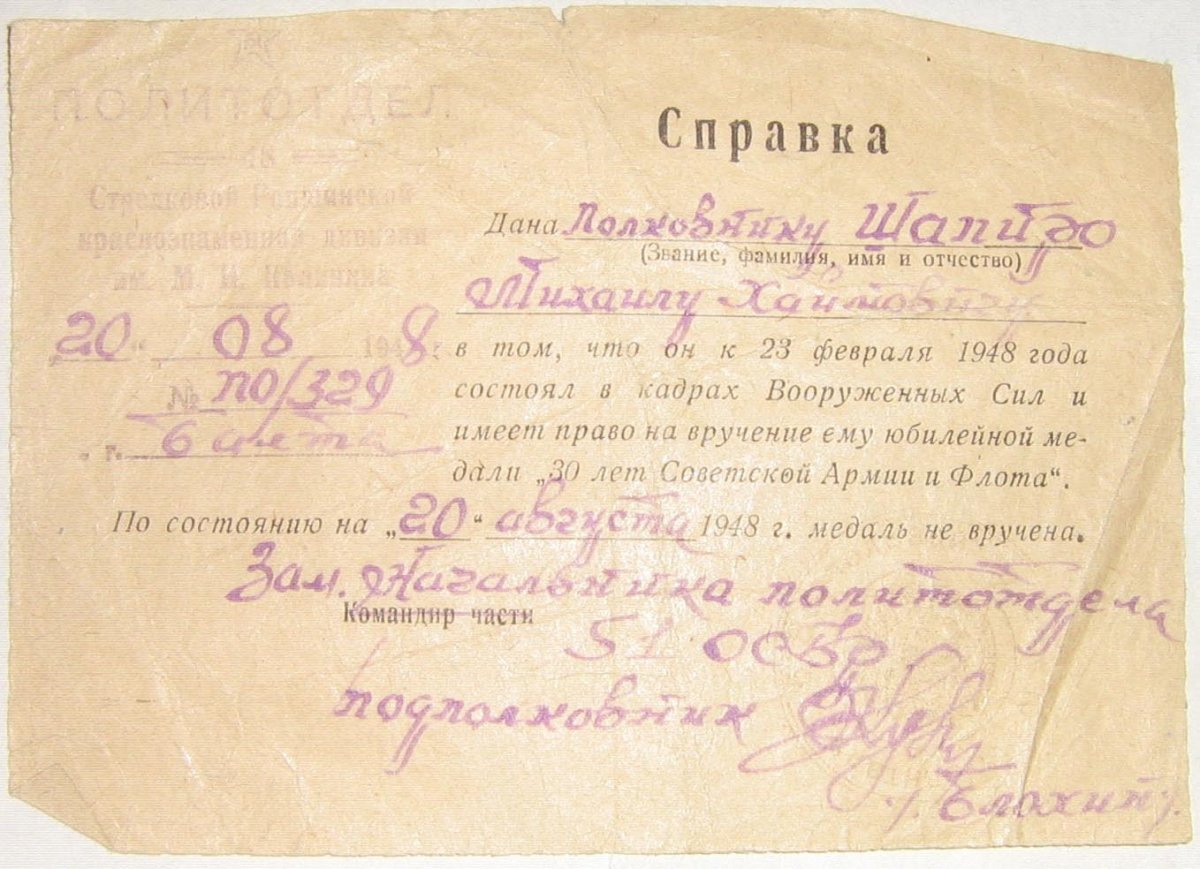 ПОЛИТОТДЕЛ
Стрелковой Ропшинской
краснознаменной дивизии
им. М. И.
„20“ 08 1948г.
№ ПО/329
г. Балта
Справка
Дана Полковнику Шапиро
(Звание, фамилия, имя и отчество)
Михаилу Хаимовичу
в том, что он к 23 февраля 1948 года
состоял в кадрах Вооруженных Сил и
имеет право на вручение ему юбилейной ме-
дали „30 лет Советской Армии и Флота“.
По состоянию на „20“ августа 1948 г. медаль не вручена.
Зам. Начальника политотдела
Командир части
51
подполковник